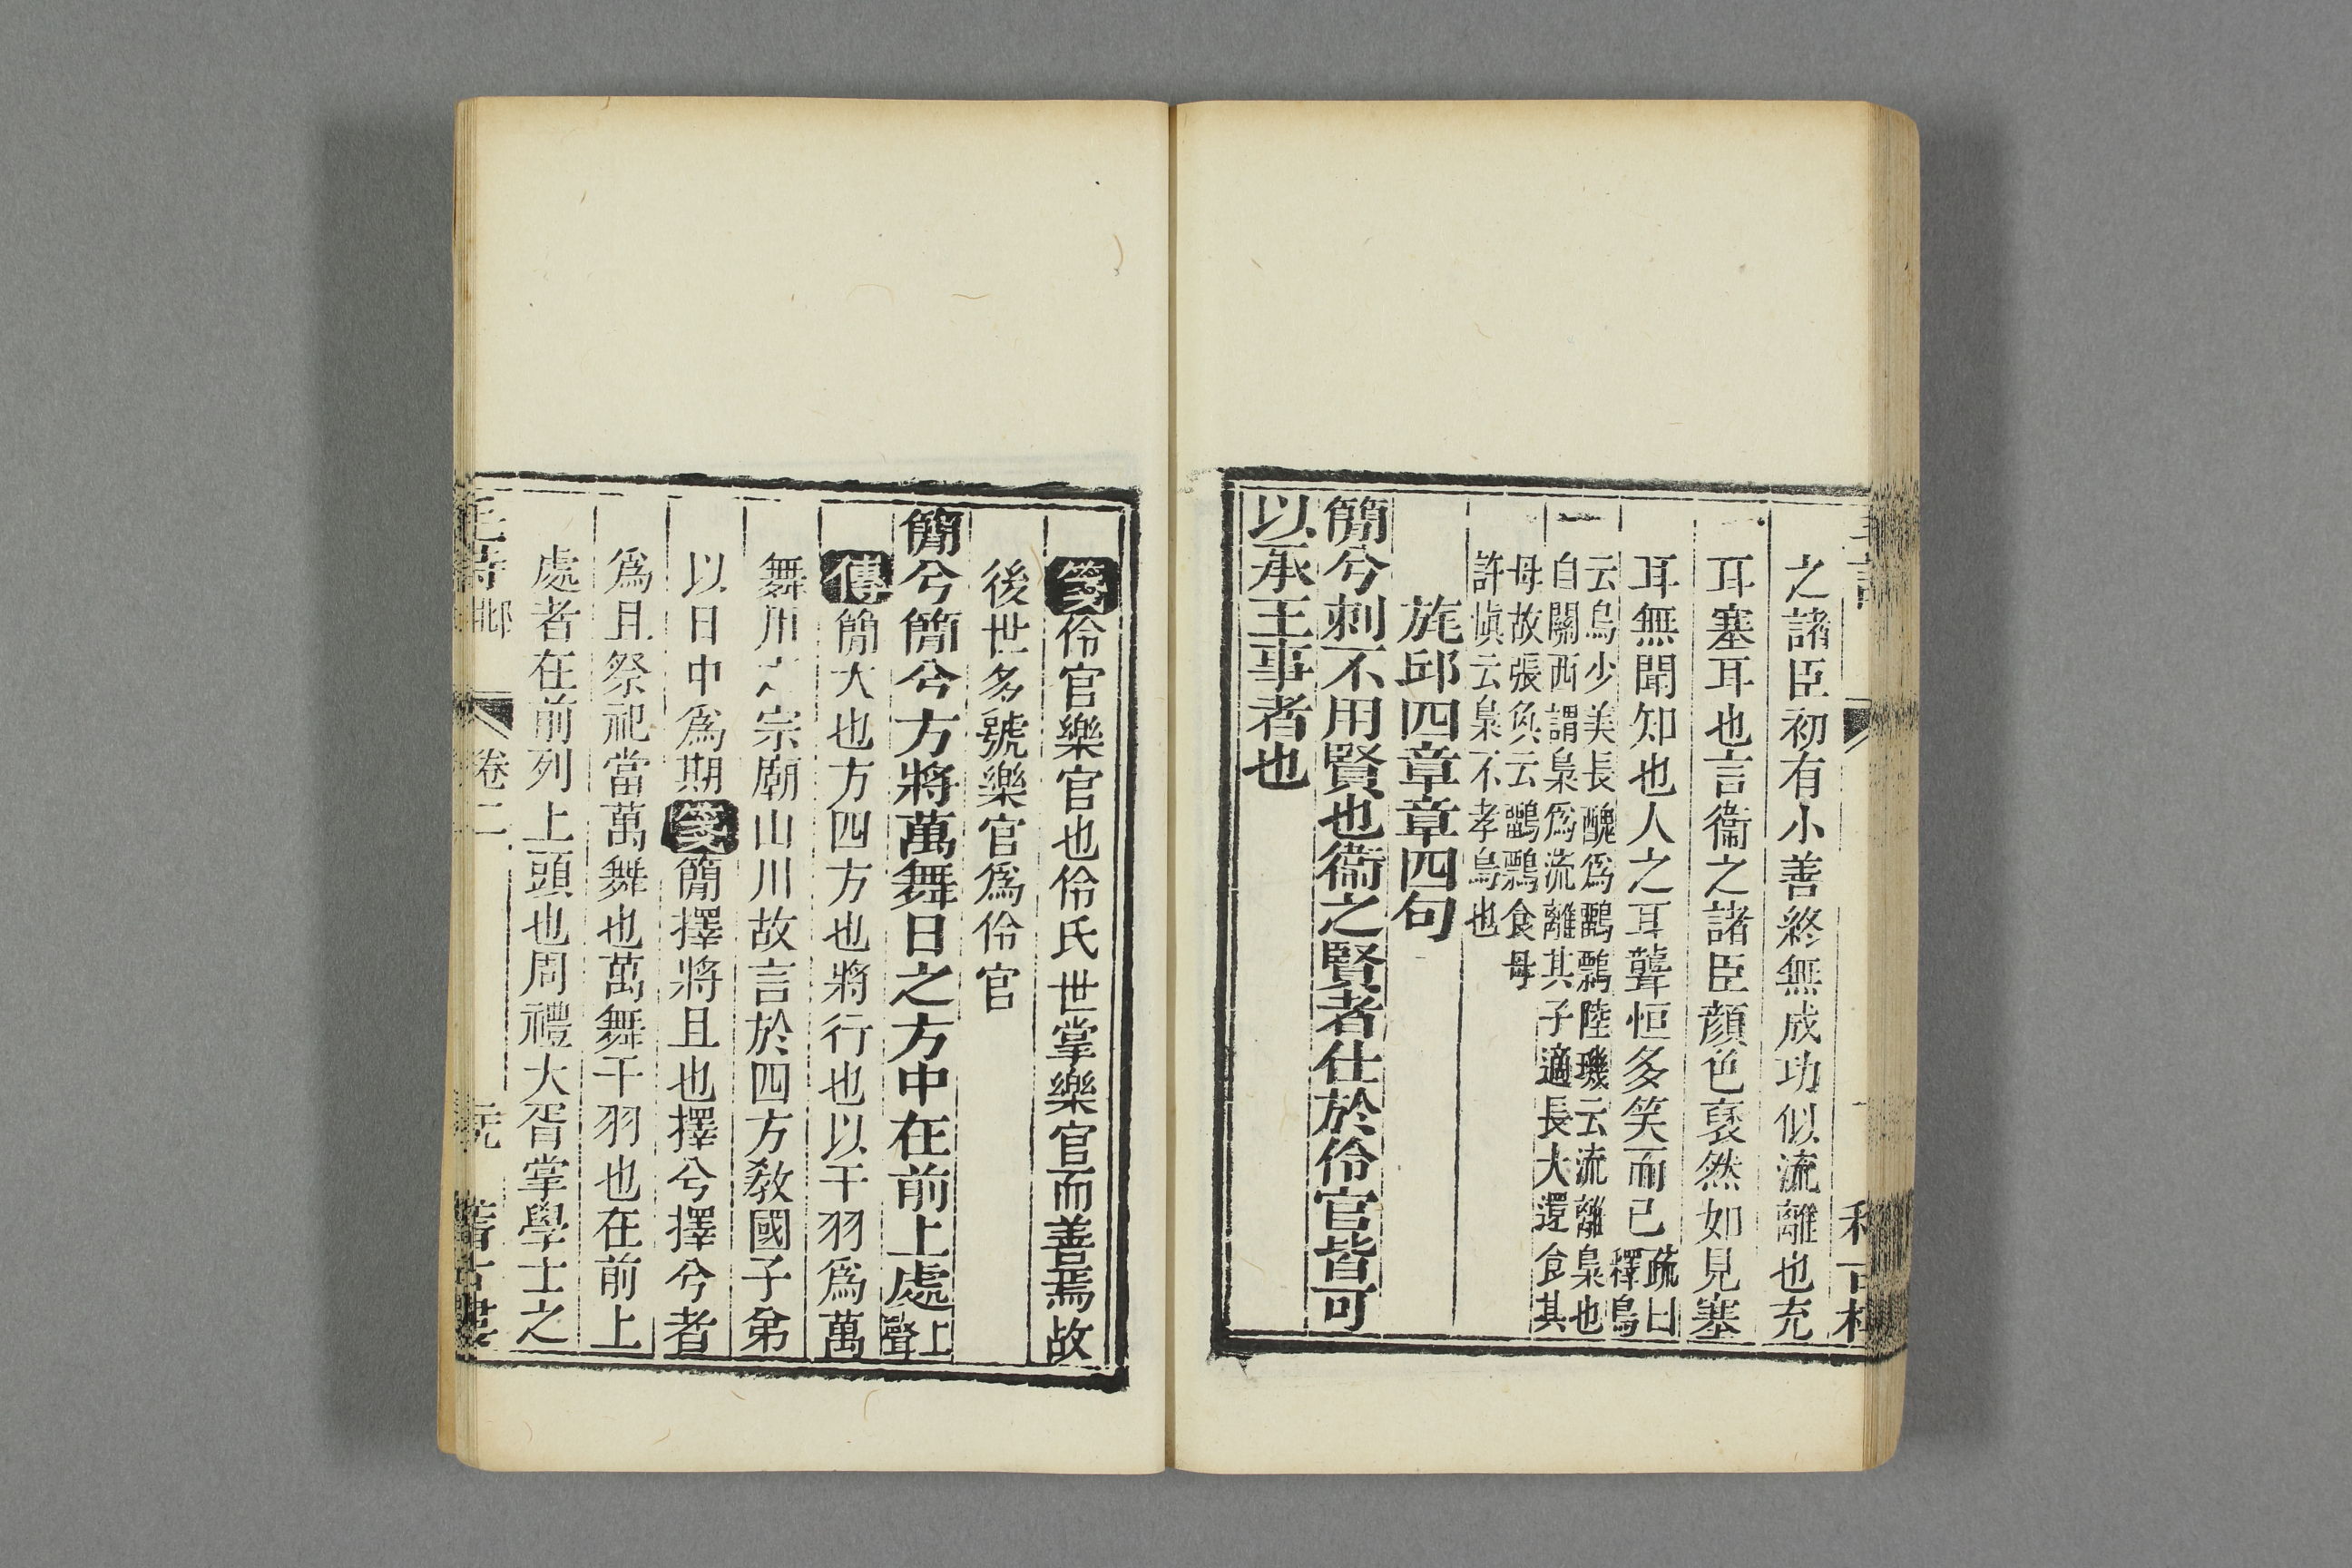 之諸臣初有小善終無成功似流離也充
耳塞耳也言衞之諸臣顏色褎然如見塞
耳無聞知也人之耳聾恒多笑而已疏曰釋鳥
云鳥少美長醜爲鸝鷅陸璣云流離梟也
自關西謂梟爲流離其子適長大還食其
母故張奐云鸝鷅食母
許愼云梟不孝鳥也
旄邱四章章四句
簡兮刺不用賢也衞之賢者仕於伶官皆可
以承王事者也
箋伶官樂官也伶氏世掌樂官而善焉故
後世多號樂官爲伶官
簡兮簡兮方將萬舞日之方中在前上處上聲
傳簡大也方四方也將行也以干羽爲萬
舞用之宗廟山川故言於四方敎國子弟
以日中爲期箋簡擇將且也擇兮擇兮者
爲且祭祀當萬舞也萬舞干羽也在前上
處者在前列上頭也周禮大胥掌學士之
毛詩 邶 卷二